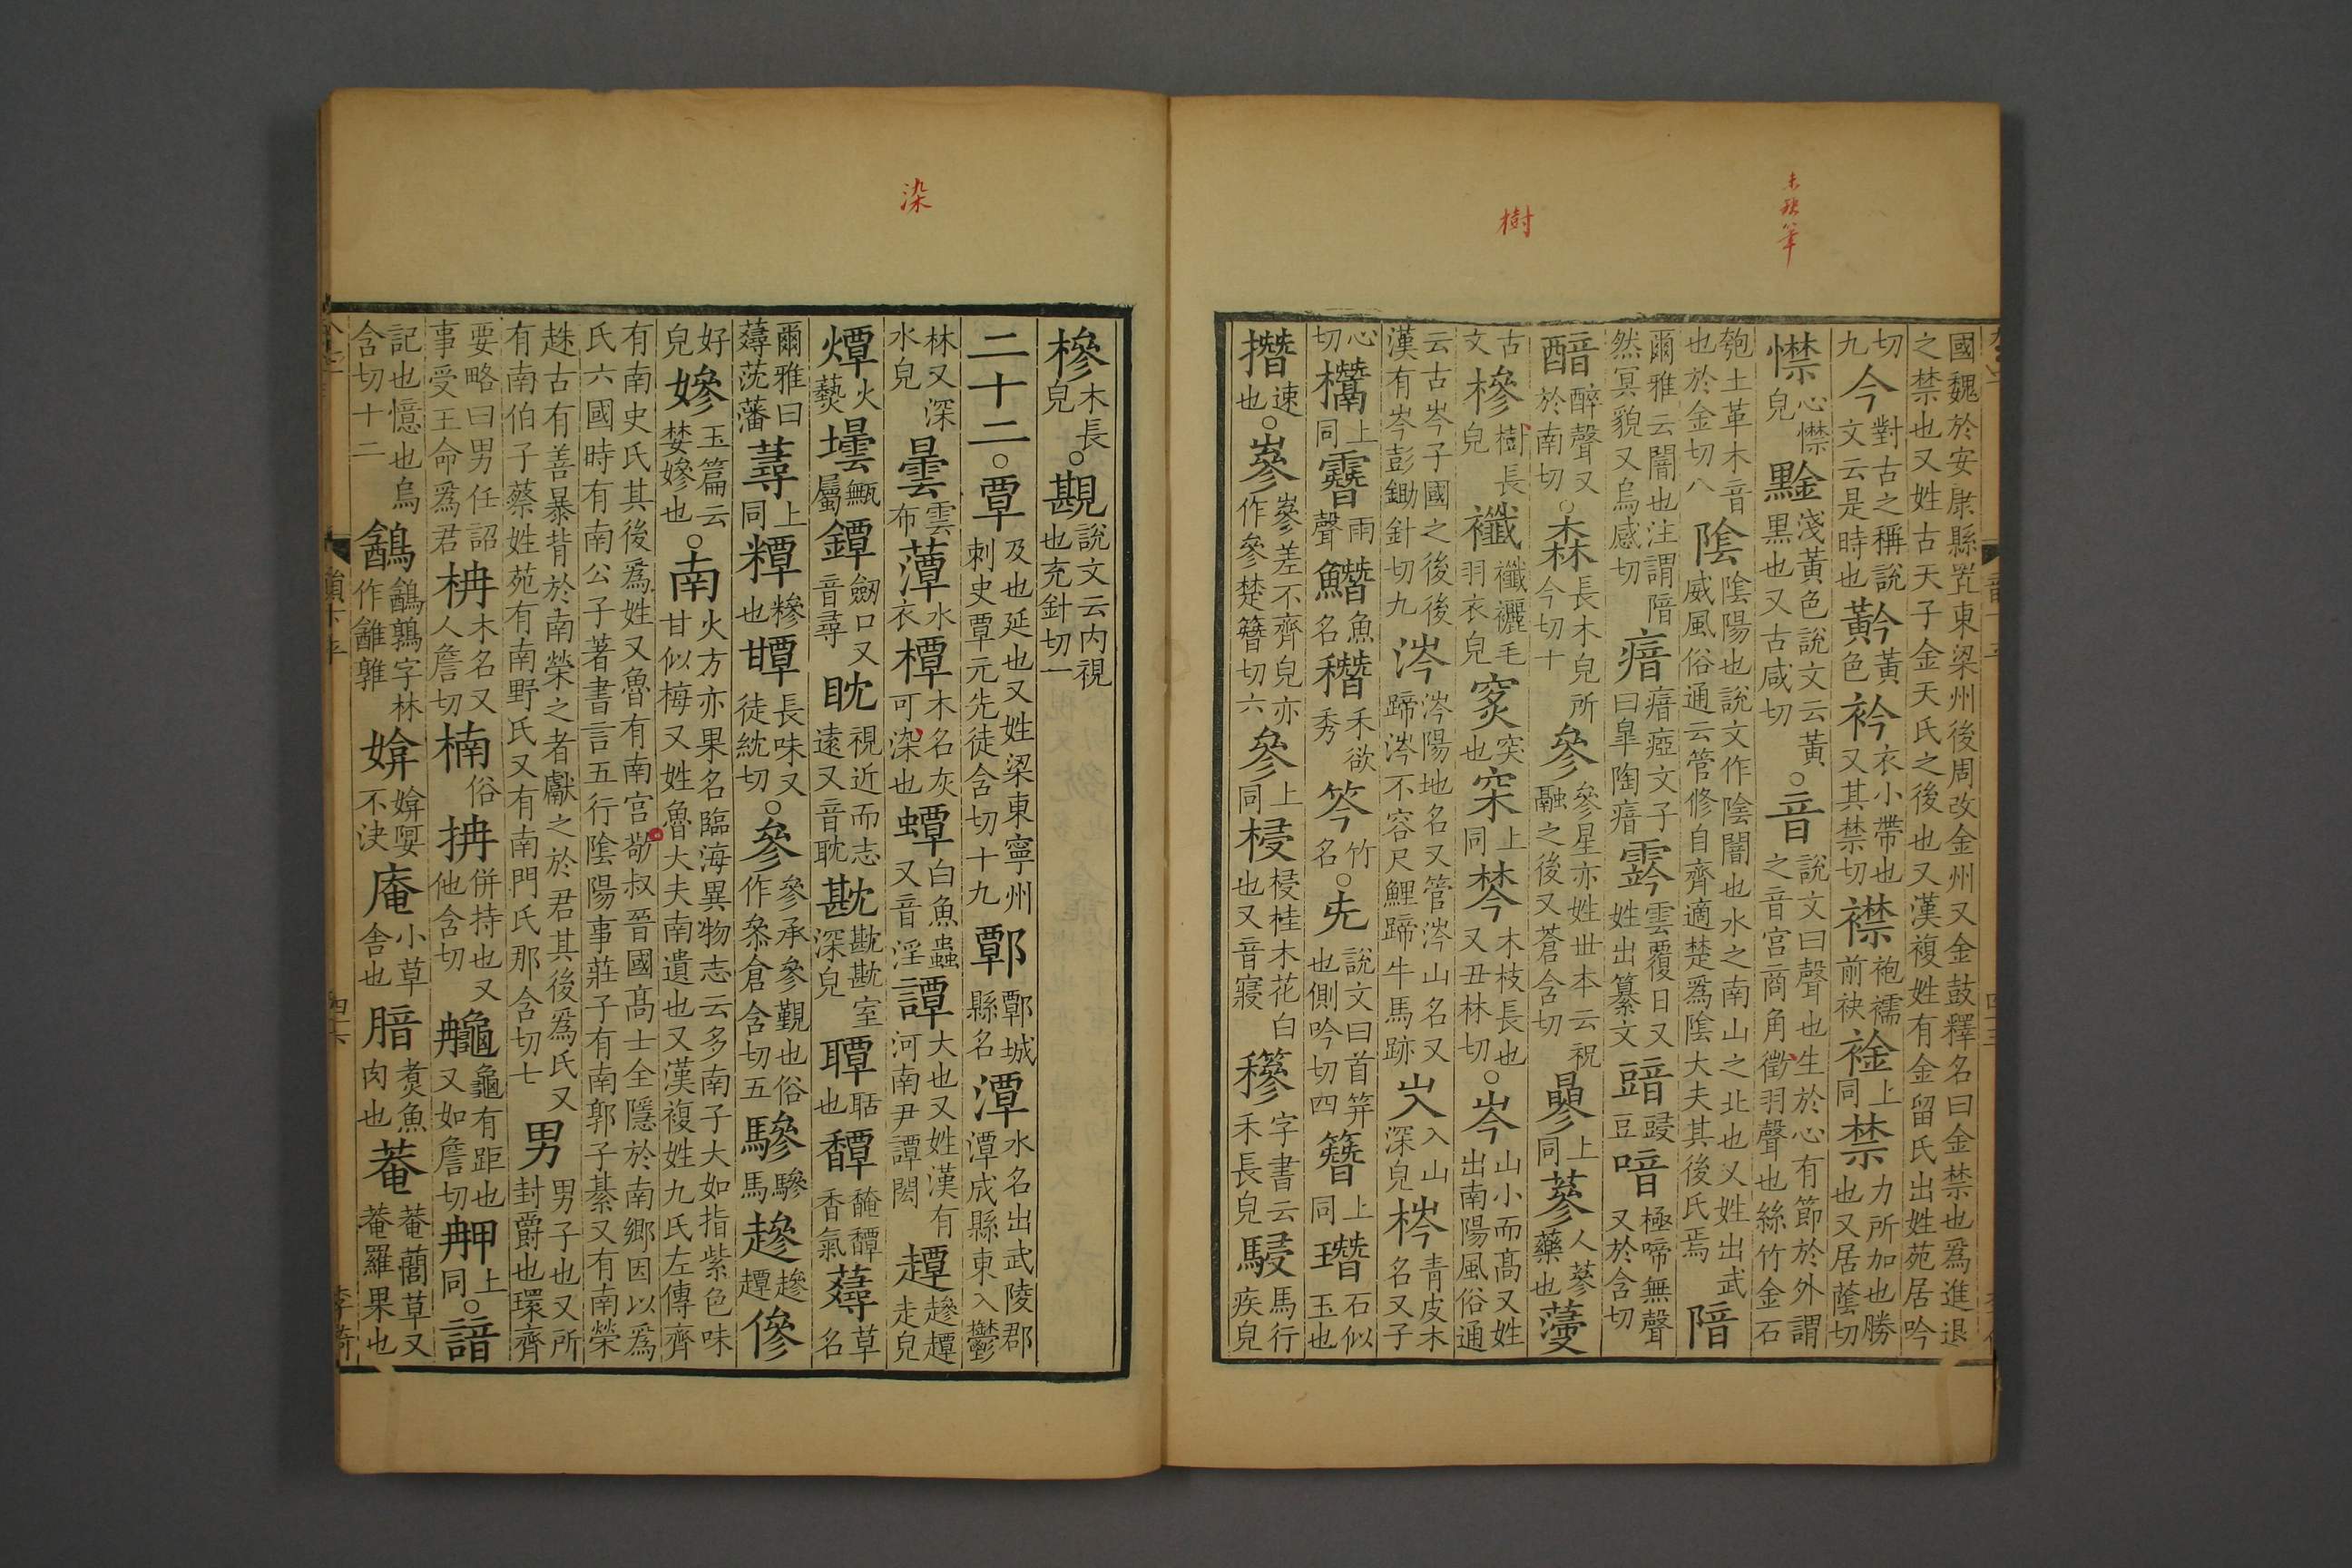 國魏於安康縣置東梁州後周改金州又金鼓釋名曰金禁也爲進退之禁也又姓古天子金天氏之後也又漢複姓有金留氏出姓苑居吟
切九今對古之稱說文云是時也黅黃色衿衣小帶也又其禁切襟袍襦前袂䘳上同禁力所加也勝也又居蔭切
㦗心㦗皃䵖淺黃色說文云黃黑也又古咸切○音說文曰聲也生於心有節於外謂之音宫商角徵羽聲也絲竹金石
匏土革木音也於金切八陰陰陽也說文作陰闇也水之南山之北也又姓出武威風俗通云管修自齊適楚爲陰大夫其後氏焉隌
爾雅云闇也注謂隌然冥貌又烏感切瘖瘖瘂文子曰臯陶瘖霠雲覆日又姓出纂文䜾豉豆喑極啼無聲又於含切
䤃醉聲又於南切○森長木皃所今切十參參星亦姓世本云祝融之後又蒼含切曑上同蔘人蔘藥也薓
古文槮樹長皃襳襳襹毛羽衣皃穼突也罙上同棽木枝長也又丑林切○岑山小而高又姓出南陽風俗通
云古岑子國之後後漢有岑彭鋤針切九涔涔陽地名又管涔山名又蹄涔不容尺鯉蹄牛馬跡㞥入山深皃梣青皮木名又子
心切上同雨聲䲋魚名禾欲秀笒竹名○兂說文曰首筓也側吟切四簪上同㻸石似玉也
撍速也○嵾嵾差不齊皃亦作參楚簪切六參上同梫梫桂木花白也又音寑穇字書云禾長皃駸馬行疾皃
槮木長皃○覾說文云内視也充針切一
二十二○覃及也延也又姓梁東寧州刺史覃元先徒含切十九鄿鄿城縣名潭水名出武陵郡潭成縣東入鬱
林又深水皃曇雲布薚水衣橝木名灰可染也蟫白魚蟲又音淫譚大也又姓漢有河南尹譚閎趯趁走皃
燂火爇壜甒屬鐔劒口又音尋眈視近而志遠又音耽黮黮黮室深皃聃䎳也馣馣馟香氣蕁草名
爾雅曰蕁莐藩䓴上同糣糝也䜖長味又徒紞切○參參承參覲也俗作叅倉含切五驂驂馬趁趁趯傪
好皃嫀玉篇云婪嫀也○南火方亦果名臨海異物志云多南子大如指紫色味甘似梅又姓魯大夫南遺也又漢複姓九氏左傳齊
有南史氏其後爲姓又魯有南宫敬叔晉國高士全隱於南鄉因以爲氏六國時有南公子著書言五行陰陽事莊子有南郭子綦又有南榮
趎古有善暴背於南榮之者獻之於君其後爲氏又有南伯子蔡姓苑有南野氏又有南門氏那含切七男男子也又所封爵也環齊
要略曰男任詔事受王命爲君枏木名又人詹切楠俗抩併持也又他含切䶲龜有距也又如詹切䶳上同○諳
記也憶也烏含切十二鶕鶕鶉字林作䨄䧹媕媕娿不決庵小草舍也腤煑魚肉也菴菴䕡草又菴羅果也
未缺筆
樹
染